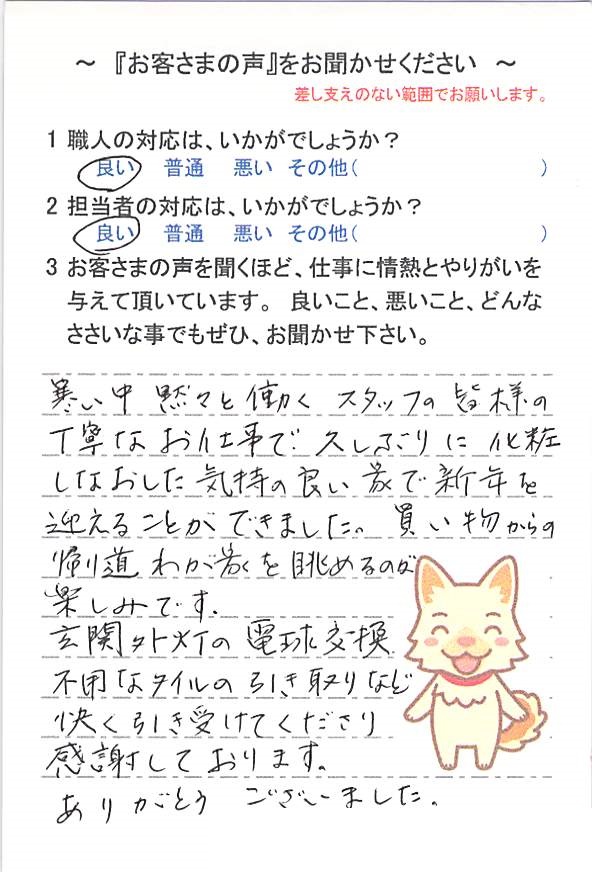 ～ 『お客さまの声』をお聞かせください ～
差し支えのない範囲でお願いします。
1 職人の対応は、いかがでしょうか？
良い 普通 悪い その他( )
2 担当者の対応は、いかがでしょうか？
良い 普通 悪い その他( )
3 お客さまの声を聞くほど、仕事に情熱とやりがいを
与えて頂いています。 良いこと、悪いこと、どんな
ささいな事でもぜひ、お聞かせ下さい。
寒い中 黙々と働く スタッフの皆様の
丁寧なお仕事で 久しぶりに 化粧
しなおした気持の良い家で新年を
迎えることができました。買い物からの
帰り道 わが家を眺めるのが
楽しみです.
玄関外灯の電球交換
不用なタイルの引き取りなど
快く引き受けてくださり
感謝しております。
ありがとう ございました。